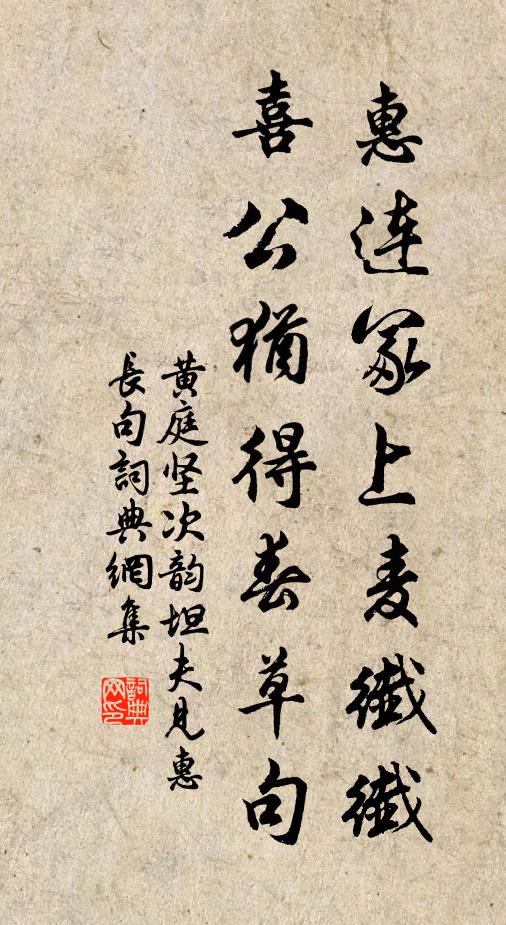 惠连冢上麦纖纖
喜公猶得春草句
黄庭坚次韵坦夫見惠
長句詞典網集
詞典网印